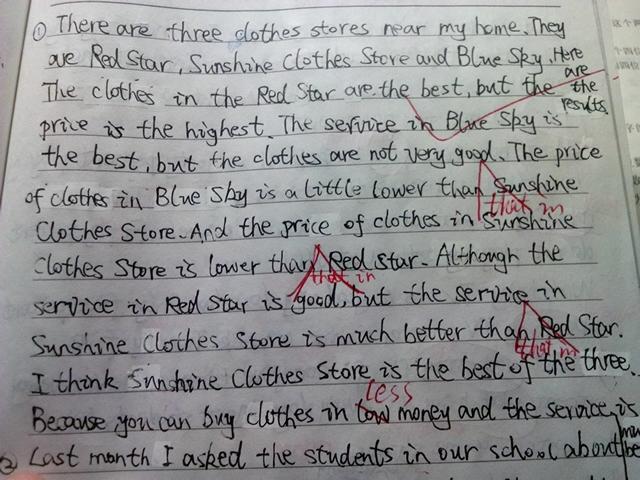 ① There are three clothes stores near my home. They
are Red Star, Sunshine Clothes Store and Blue Sky. Here are the results.
The clothes in the Red Star are the best, but the
price is the highest. The service in Blue Sky is
the best, but the clothes are not very good. The price
of clothes in Blue Sky is a little lower than Sunshine
that in
Clothes Store. And the price of clothes in Sunshine
Clothes Store is lower than Red Star. Although the
that in
service in Red Star is good, but the service in
Sunshine Clothes Store is much better than Red Star.
that in
I think Sunshine Clothes Store is the best of the three.
less
Because you can buy clothes in low money and the service is
② Last month I asked the students in our school about